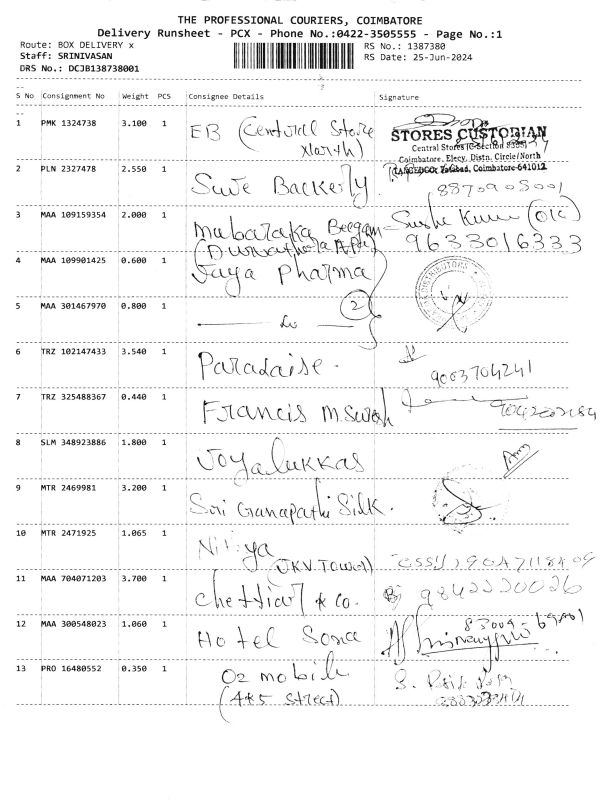 THE PROFESSIONAL COURIERS, COIMBATORE
Delivery Runsheet - PCX - Phone No.:0422-3505555 - Page No.:1
Route: BOX DELIVERY x
RS No.: 1387380
Staff: SRINIVASAN
RS Date: 25-Jun-2024
DRS No.: DCJB138738001
S No Consignment No Weight PCS Consignee Details Signature
1 PMK 1324738 3.100 1 EB (Central Store
STORES CUSTODIAN
Central Stores
Coimbatore. Elecy. Distn. Circle/North
TANGEDCO, Tatabad, Coimbatore-641012
2 PLN 2327478 2.550 1 Suve Backerly 8870905001
3 MAA 109159354 2.000 1 Mubaraka Beegam
9633016333
4 MAA 109901425 0.600 1 Jaya Pharma
5 MAA 301467970 0.800 1 2
6 TRZ 102147433 3.540 1 Paradaise. 9003704241
7 TRZ 325488367 0.440 1 Francis M.
8 SLM 348923886 1.800 1 Joyalukkas
9 MTR 2469981 3.200 1 Sri Ganapathi Silk.
10 MTR 2471925 1.065 1
(JKV Tower)
11 MAA 704071203 3.700 1 Chettiar & Co. 9842220026
12 MAA 300548023 1.060 1 Hotel Sona
13 PRO 16480552 0.350 1 O2 mobile
(4*5 Street)